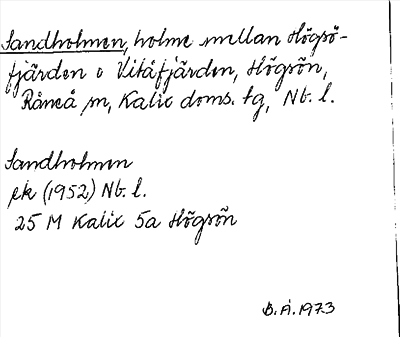 Sandholmen, holme mellan Högsö-
fjärden o Vitåfjärden, Högsön,
Råneå sn, Kalix doms. tg, Nb. l.
Sandholmen
ek (1952) Nb. l.
25 M Kalix 5a Högsön
B.Å. 1973